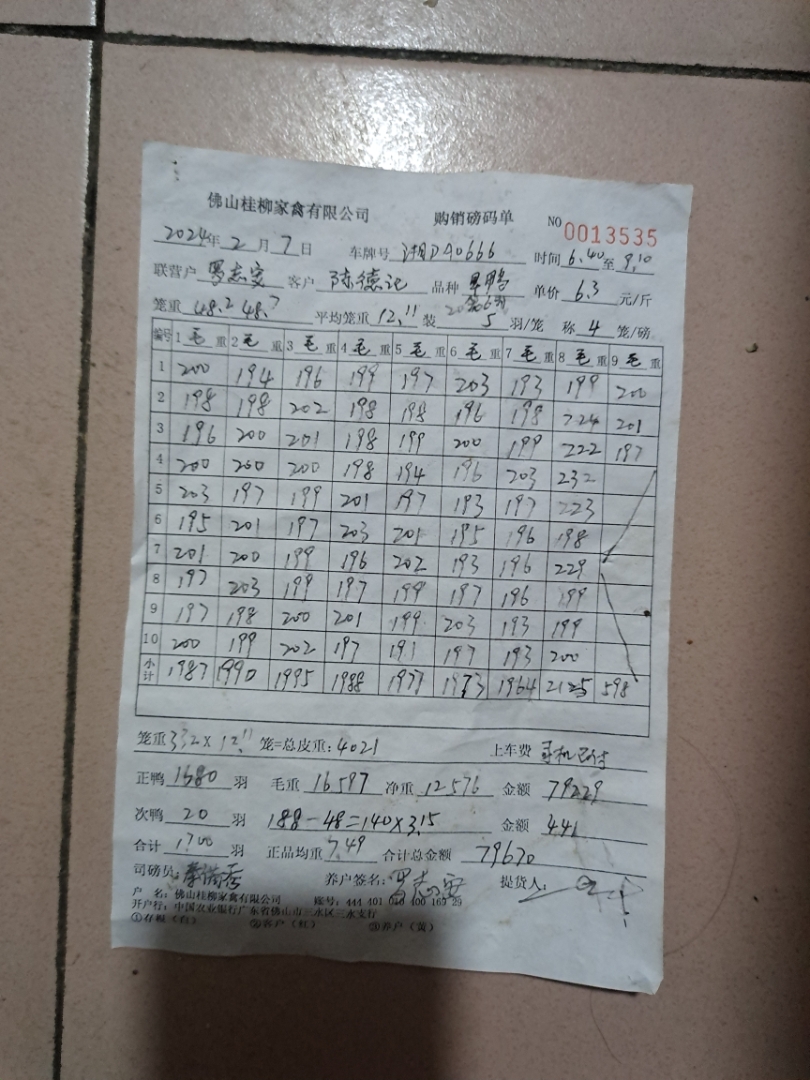 佛山桂柳家禽有限公司 购销磅码单 NO 0013535
2024年2月7日 车牌号 湘DA0666 时间 6.40至9.10
联营户 罗志安 客户 陈德记 品种 单价 6.3 元/斤
笼重 48.2 48.7 平均笼重 12.11 装 5 羽/笼 称 4 笼/磅
编号 1毛重 2毛重 3毛重 4毛重 5毛重 6毛重 7毛重 8毛重 9毛重
1 200 194 196 199 197 203 193 199 200
2 198 198 202 198 198 196 198 224 201
3 196 200 201 198 199 200 199 222 197
4 200 200 200 198 194 196 203 232
5 203 197 199 201 197 193 197 223
6 195 201 197 203 201 195 196 198
7 201 200 199 196 202 193 196 229
8 197 203 199 197 199 197 196 199
9 197 198 200 201 199 203 193 199
10 200 199 202 197 191 197 193 200
小计 1987 1990 1995 1988 1977 1973 1964 2125 598
笼重 332×12.11 笼=总皮重:4021 上车费 司机已付
正鸭 1680 羽 毛重 16597 净重 12576 金额 79229
次鸭 20 羽 188-48=140×3.15 金额 441
合计 1700 羽 正品均重 7.49 合计总金额 79670
司磅员: 养户签名: 罗志安 提货人:
户 名: 佛山桂柳家禽有限公司 账号: 444 401 040 400 163 29
开户行: 中国农业银行广东省佛山市三水区三水支行
①存根(白) ②客户(红) ③养户(黄)